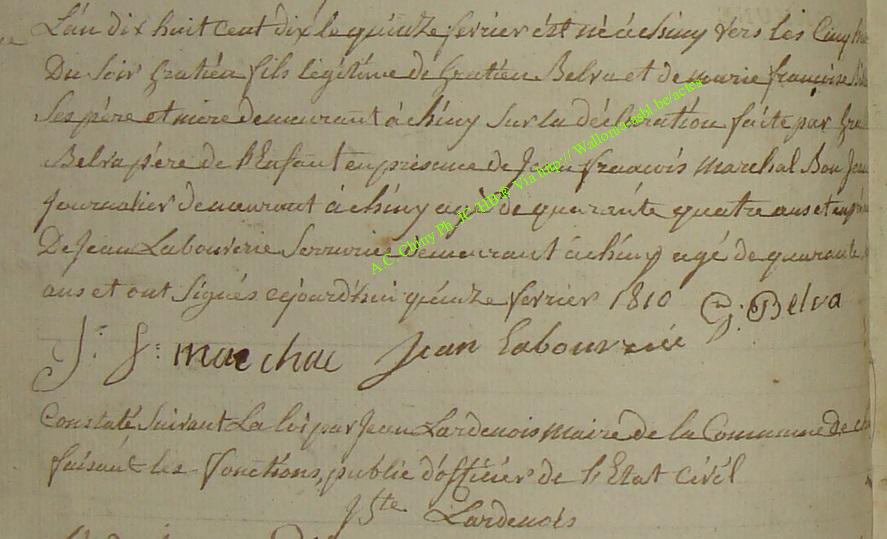 L'an dix huit cent dix le quinze fevrier est né à chiny vers les Cinq
Du Soir Gratien fils légitime de Gratien Belva et de marie françoise
Ses père et mere demeurant à chiny Sur la déclaration faite par
Belva père de l'Enfant en présence de Jean françois marchal Bon
journalier demeurant à chiny agé de quarante quatre ans et en
De Jean Labouverie Serrurier demeurant à chiny agé de quarante
ans et ont Signés cejourd'hui quinze fevrier 1810 G: Belva
J: f: marchal Jean Labouverie
Constaté Suivant La loi par Jean Lardenois maire de la Commune de
faisant les fonctions public d'officier de l'Etat civil
Lardenois
A.C. Chiny Ph. JC HB© Via http:// Wallonia-asbl.be/actes